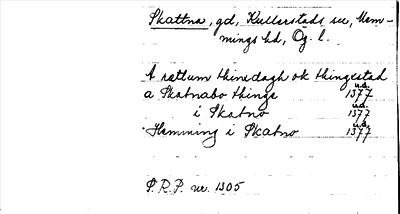 Skattna, gd, Kullerstads sn, Mem-
mings hd, Ög. l.
A rættum thinxdagh ok thingxstad
a Skatnabo thinge u.å. 1377
i Skatno u.å. 1377
Hemming i Skatno u.å. 1377
S.R.P. nr. 1305